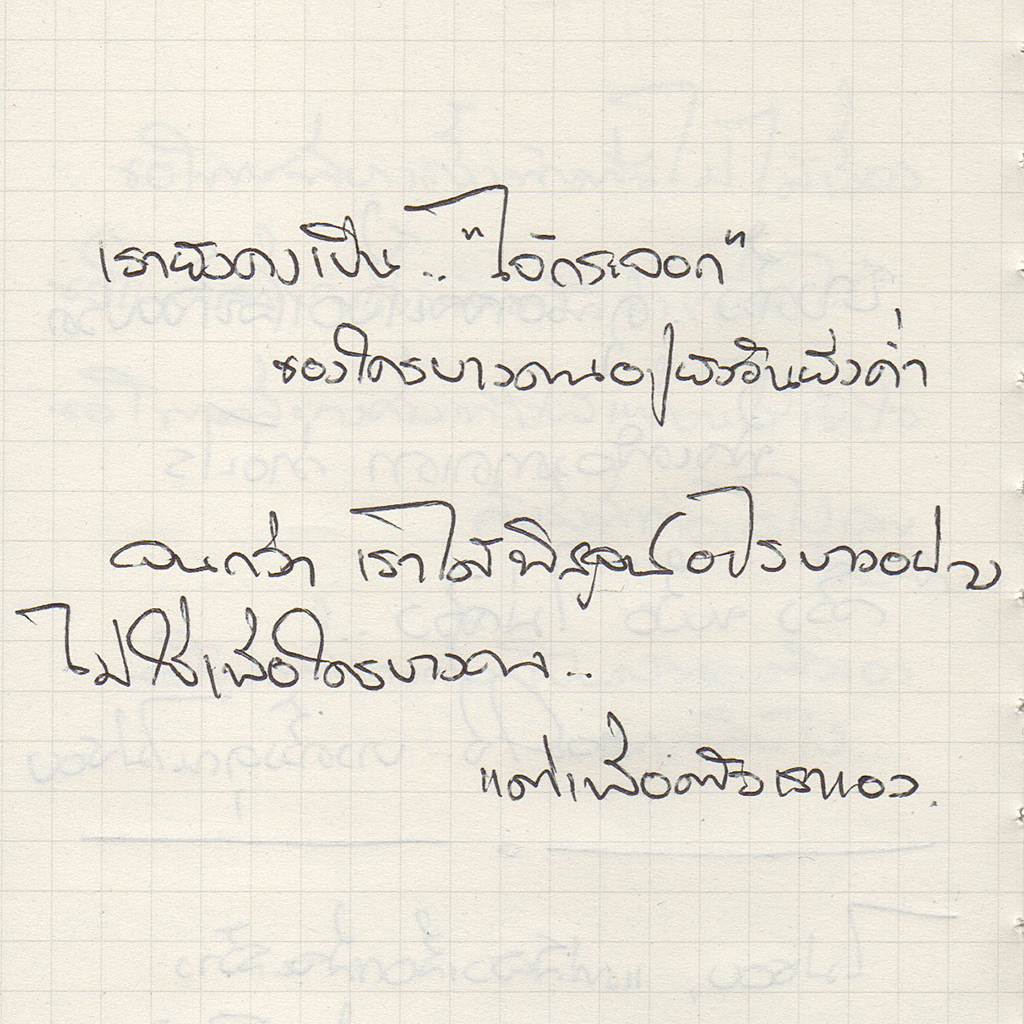 เรายังคงเป็น.. "ไอ้กระจอก"
ของใครบางคนอยู่ยังวันยังค่ำ
จนกว่า เราได้พิสูจน์อะไรบางอย่าง
ไม่ใช่เพื่อใครบางคน..
แต่เพื่อตัวเราเอง.